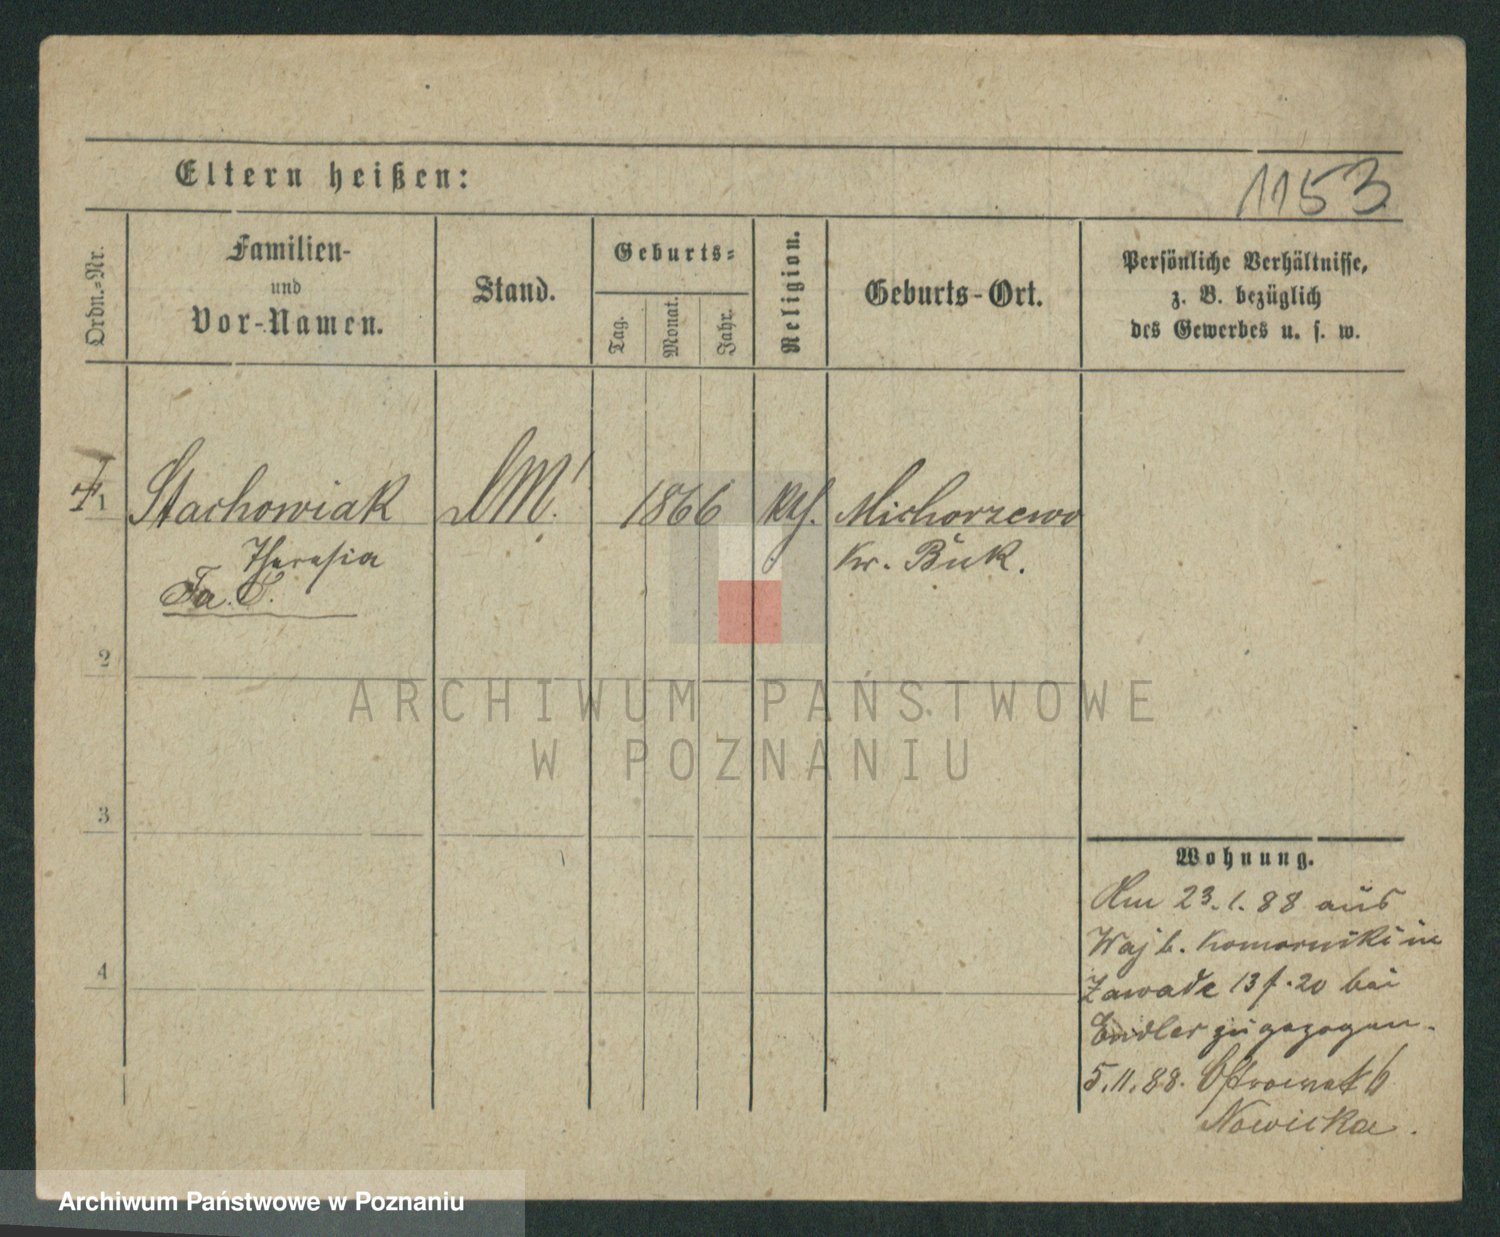 Eltern heißen:
1153
Ordn.=Nr.
Familien-
und
Vor-Namen.
Stand.
Geburts=
Tag.
Monat.
Jahr.
Religion.
Geburts-Ort.
Persönliche Verhältnisse,
z. B. bezüglich
des Gewerbes u. s. w.
1
Stachowiak
Theresia
1866
kth.
Michorzewo
Kr. Buk.
2
ARCHIWUM PAŃSTWOWE
W POZNANIU
3
4
Wohnung.
Am 23.1.88 aus
b. Komorniki in
Zawade 13 f. 20 bei
Endler zugezogen.
5.11.88. Ostrowek 6
Nowicka.
Archiwum Państwowe w Poznaniu